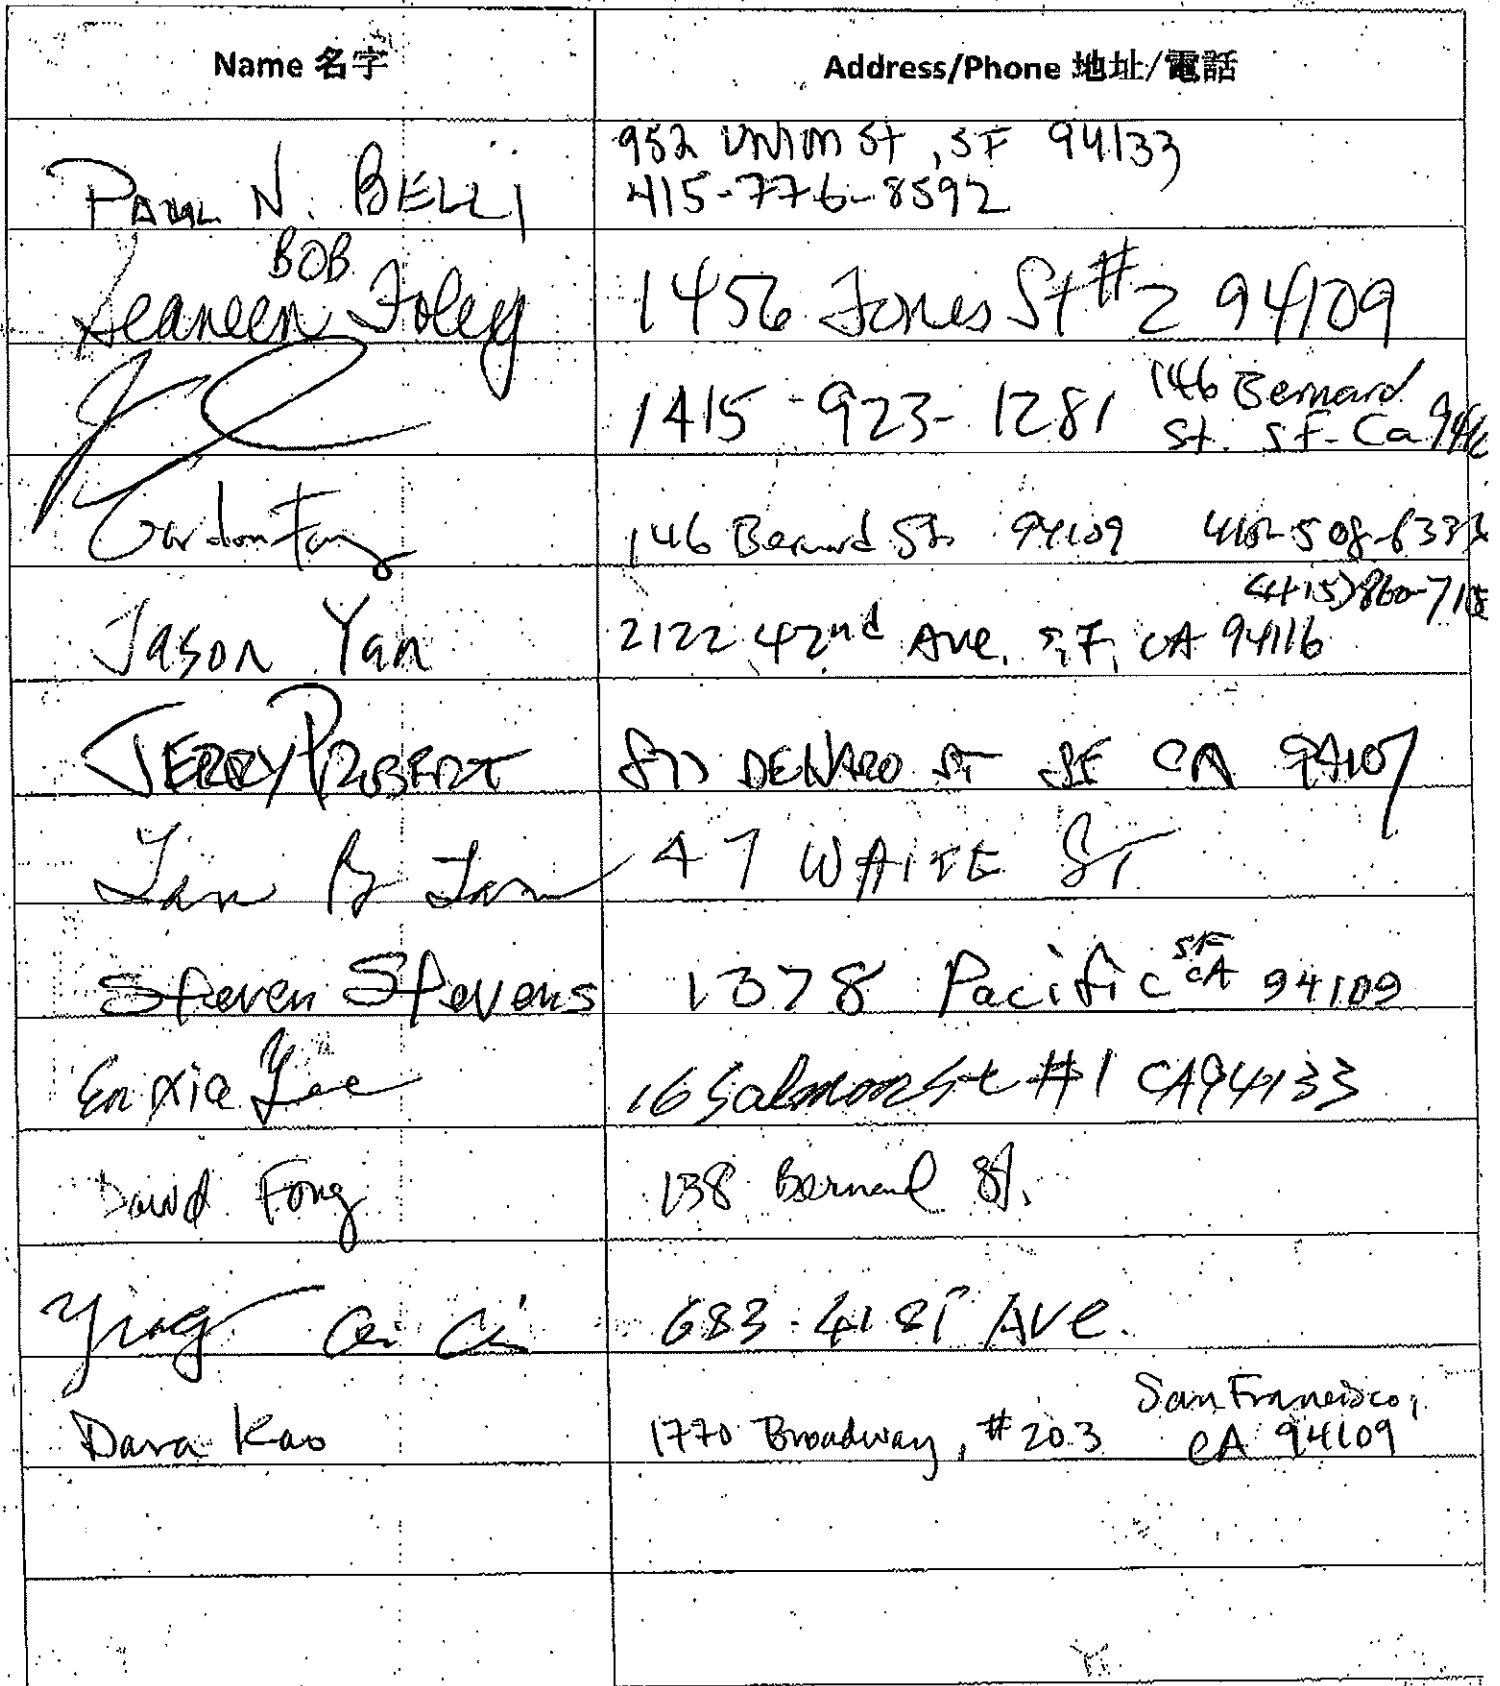 Name 名字
Address/Phone 地址/電話
PAUL N. BELLI
952 Union St, SF 94133
415-776-8592
BOB
Seaneen Foley
1456 Jones St #2 94109
1415-923-1281
146 Bernard
St. SF. Ca
Gordon Fong
146 Bernard St. 94109
Jason Yan
2122 42nd Ave, S.F, CA 94116
JERRY PROBERT
DEHARO ST SF CA 94107
47 WAITE ST
Steven Stevens
1378 Pacific SF CA 94109
Enxia Yee
16 Salmon St #1 CA94133
David Fong
138 Bernard St.
Ying
683-41ST AVE.
Dara Kao
1770 Broadway, #203
San Francisco,
CA 94109